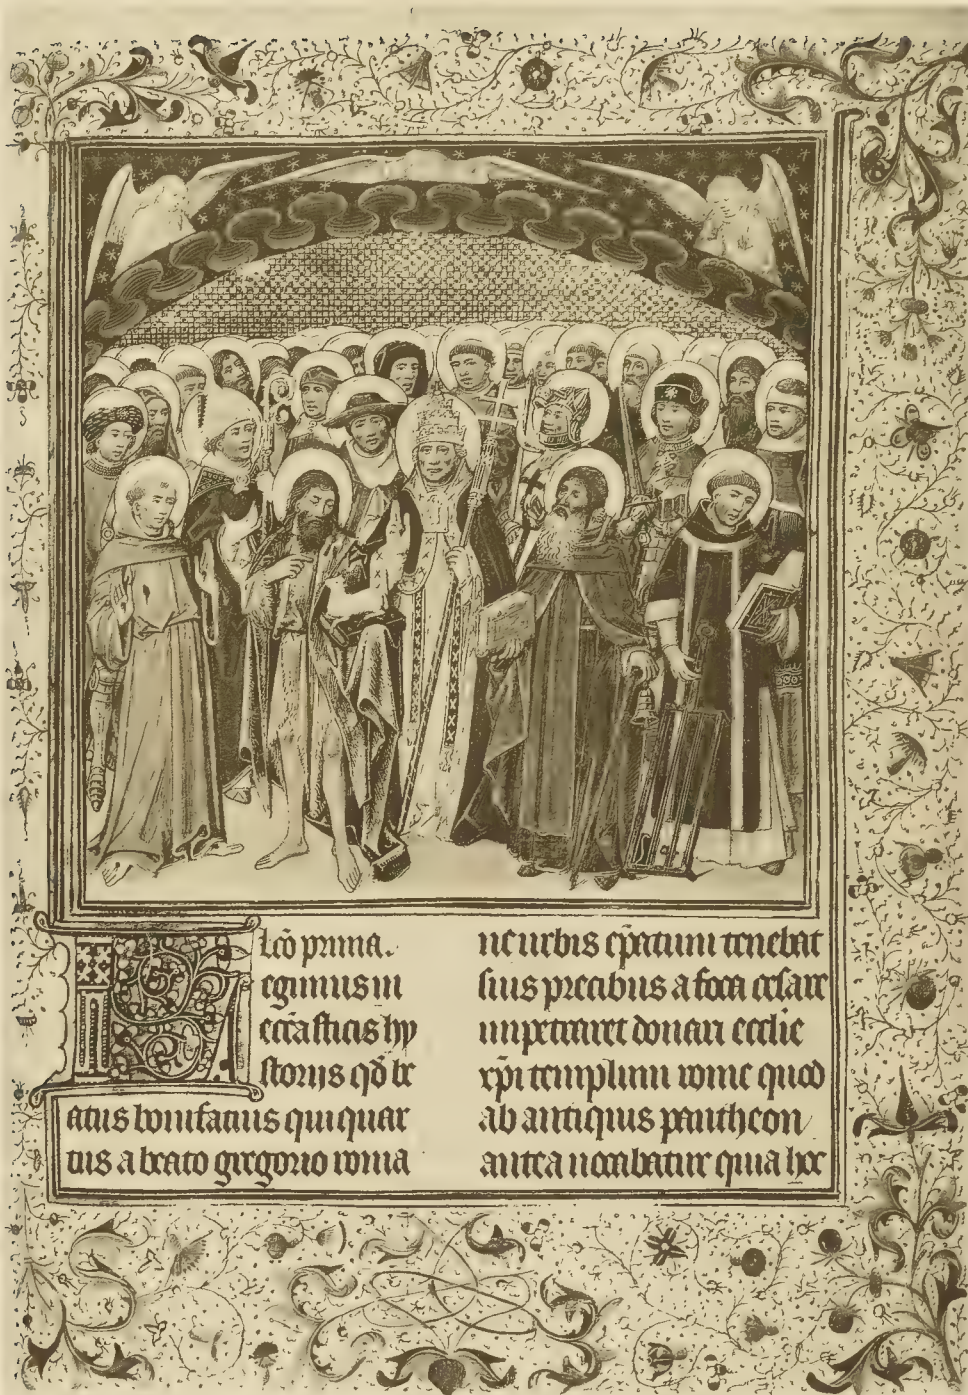 lc̄o prima.
Legimus in
ecc̄asticis hy
storijs qd̄ be
atus bonifatius qui quar
tus a beato gregorio roma
ne urbis ep̄atum tenebat
suis precibus a foca cesare
impetraret donari ecclīe
xp̄i templum rome quod
ab antiquis pantheon
antea uocabatur quia hoc